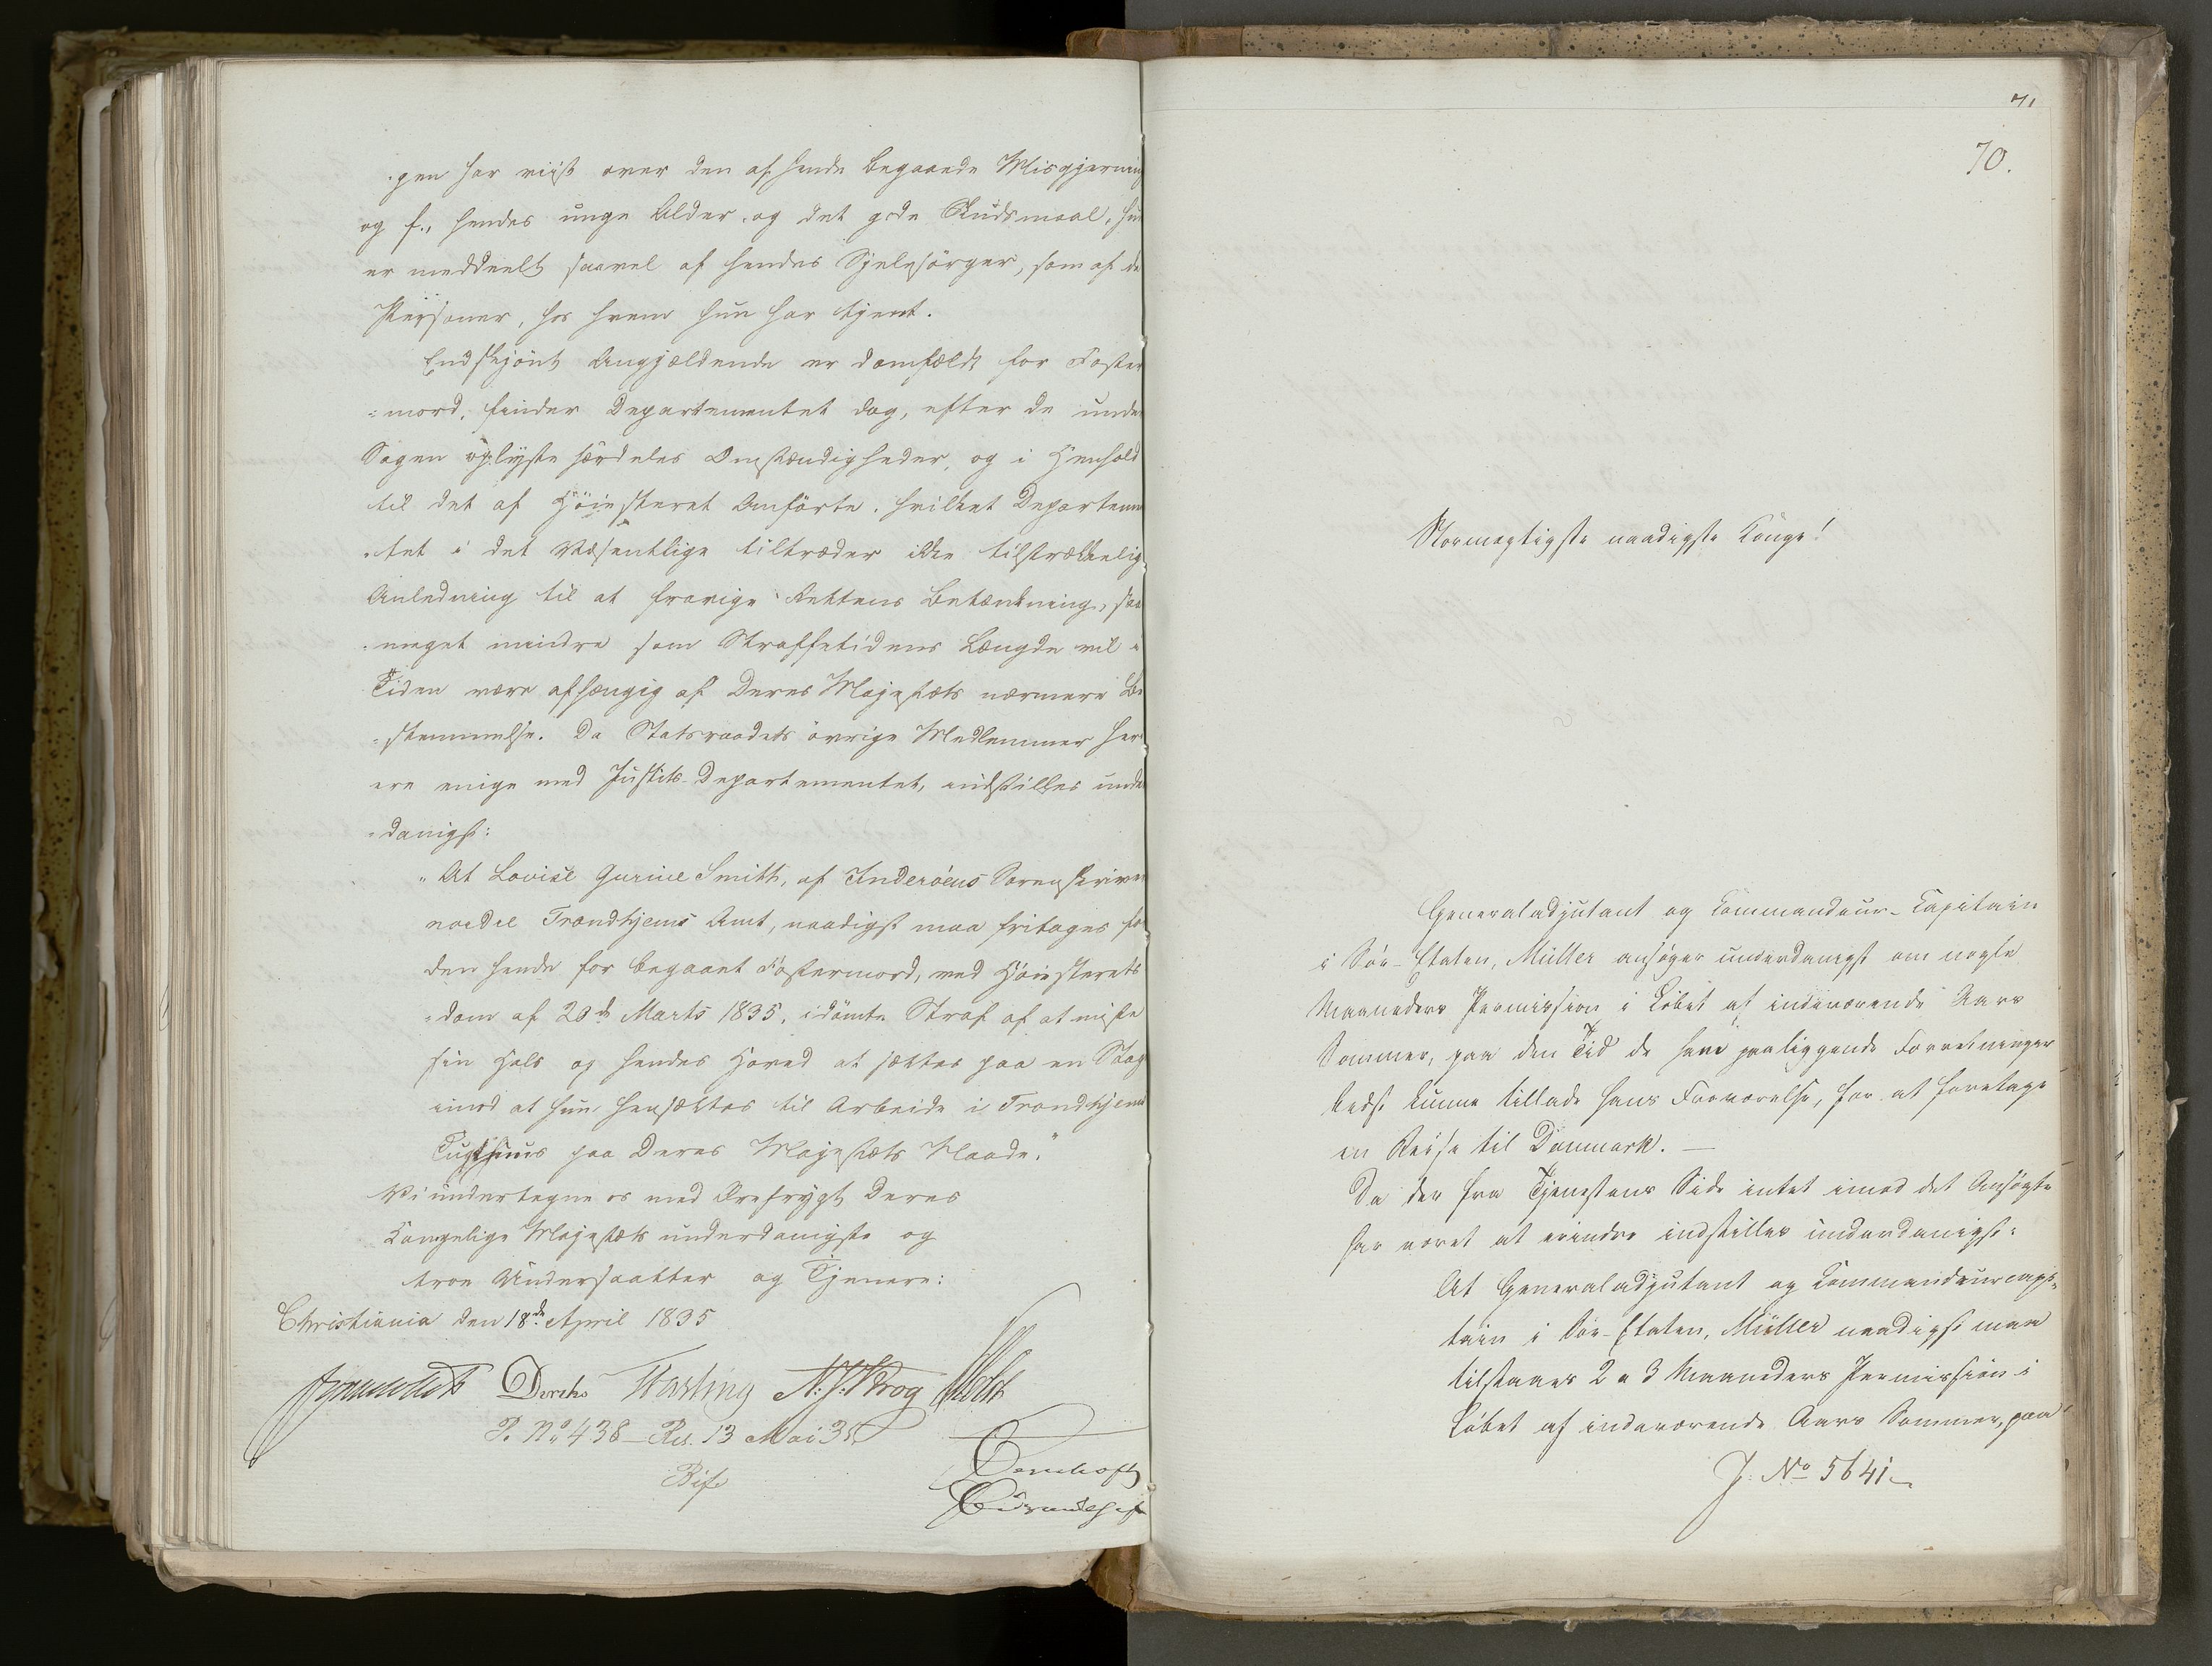 -gen har viist over den af hende begaaede Misgjerning
og f., hendes unge Alder og det gode Skudsmaal, hun
er meddeelt saavel af hendes Sjelesörger, som af de
Personer, hos hvem hun har tjent.
Endskjönt Angjældende er domfældt for Foster
=mord, finder Departementet dog, efter de under
Sagen oplyste særdeles Omstændigheder, og i Henhold
til det af Höiesteret Anförte, hvilket Departemen
-tet i det Væsentlige tiltræder ikke tilstrækkelig
Anledning til at fravige Rettens Betænkning, saa
meget mindre som Straffetidens Længde vil i
Tiden være afhængig af Deres Majestæts nærmere Be
-stemmelse. Da Statsraadets övrige Medlemmer her
ere enige med Justits-Departementet, indstilles under
-danigst:
"At Lovise Gurine Smith, af Inderöens Sorenskriverie
nordre Trondhjems Amt, naadigst maa fritages for
den hende for begaaet Fostermord, ved Höiesterets
-dom af 20de Marts 1835, idömte Straf af at miste
sin Hals og hendes Hoved at sættes paa en Stage
imod at hun hensættes til Arbeide i Trondhjems
Tugthuus paa Deres Majestæts Naade."
Vi undertegne os med Ærefrygt Deres
Kongelige Majestæts underdanigste og
troe Undersaatter og Tjenere:
Christiania den 18de April 1835
Diriks Fasting N: J: Krog Holst
P. No 438 - Res. 13 Mai 35
71
70.
Stormægtigste naadigste Konge!
Generaladjutant og Kommandeur-Kapitain
i Söe-Etaten, Müller ansöger underdanigst om nogle
Maaneders Permission i Löbet af indeværende Aars
Sommer, paa den Tid de ham paaliggende Forretninger
bedst kunne tillade hans Fraværelse, for at foretage
en Reise til Danmark. —
Da der fra Tjenestens Side intet imod det Ansögte
har været at erindre indstilles underdanigst:
At Generaladjutant og Kommandeurcapi=
tain i Söe-Etaten, Müller naadigst maa
tilstaaes 2 a 3 Maaneders Permission i
Löbet af indeværende Aars Sommer, paa
J: No 5641